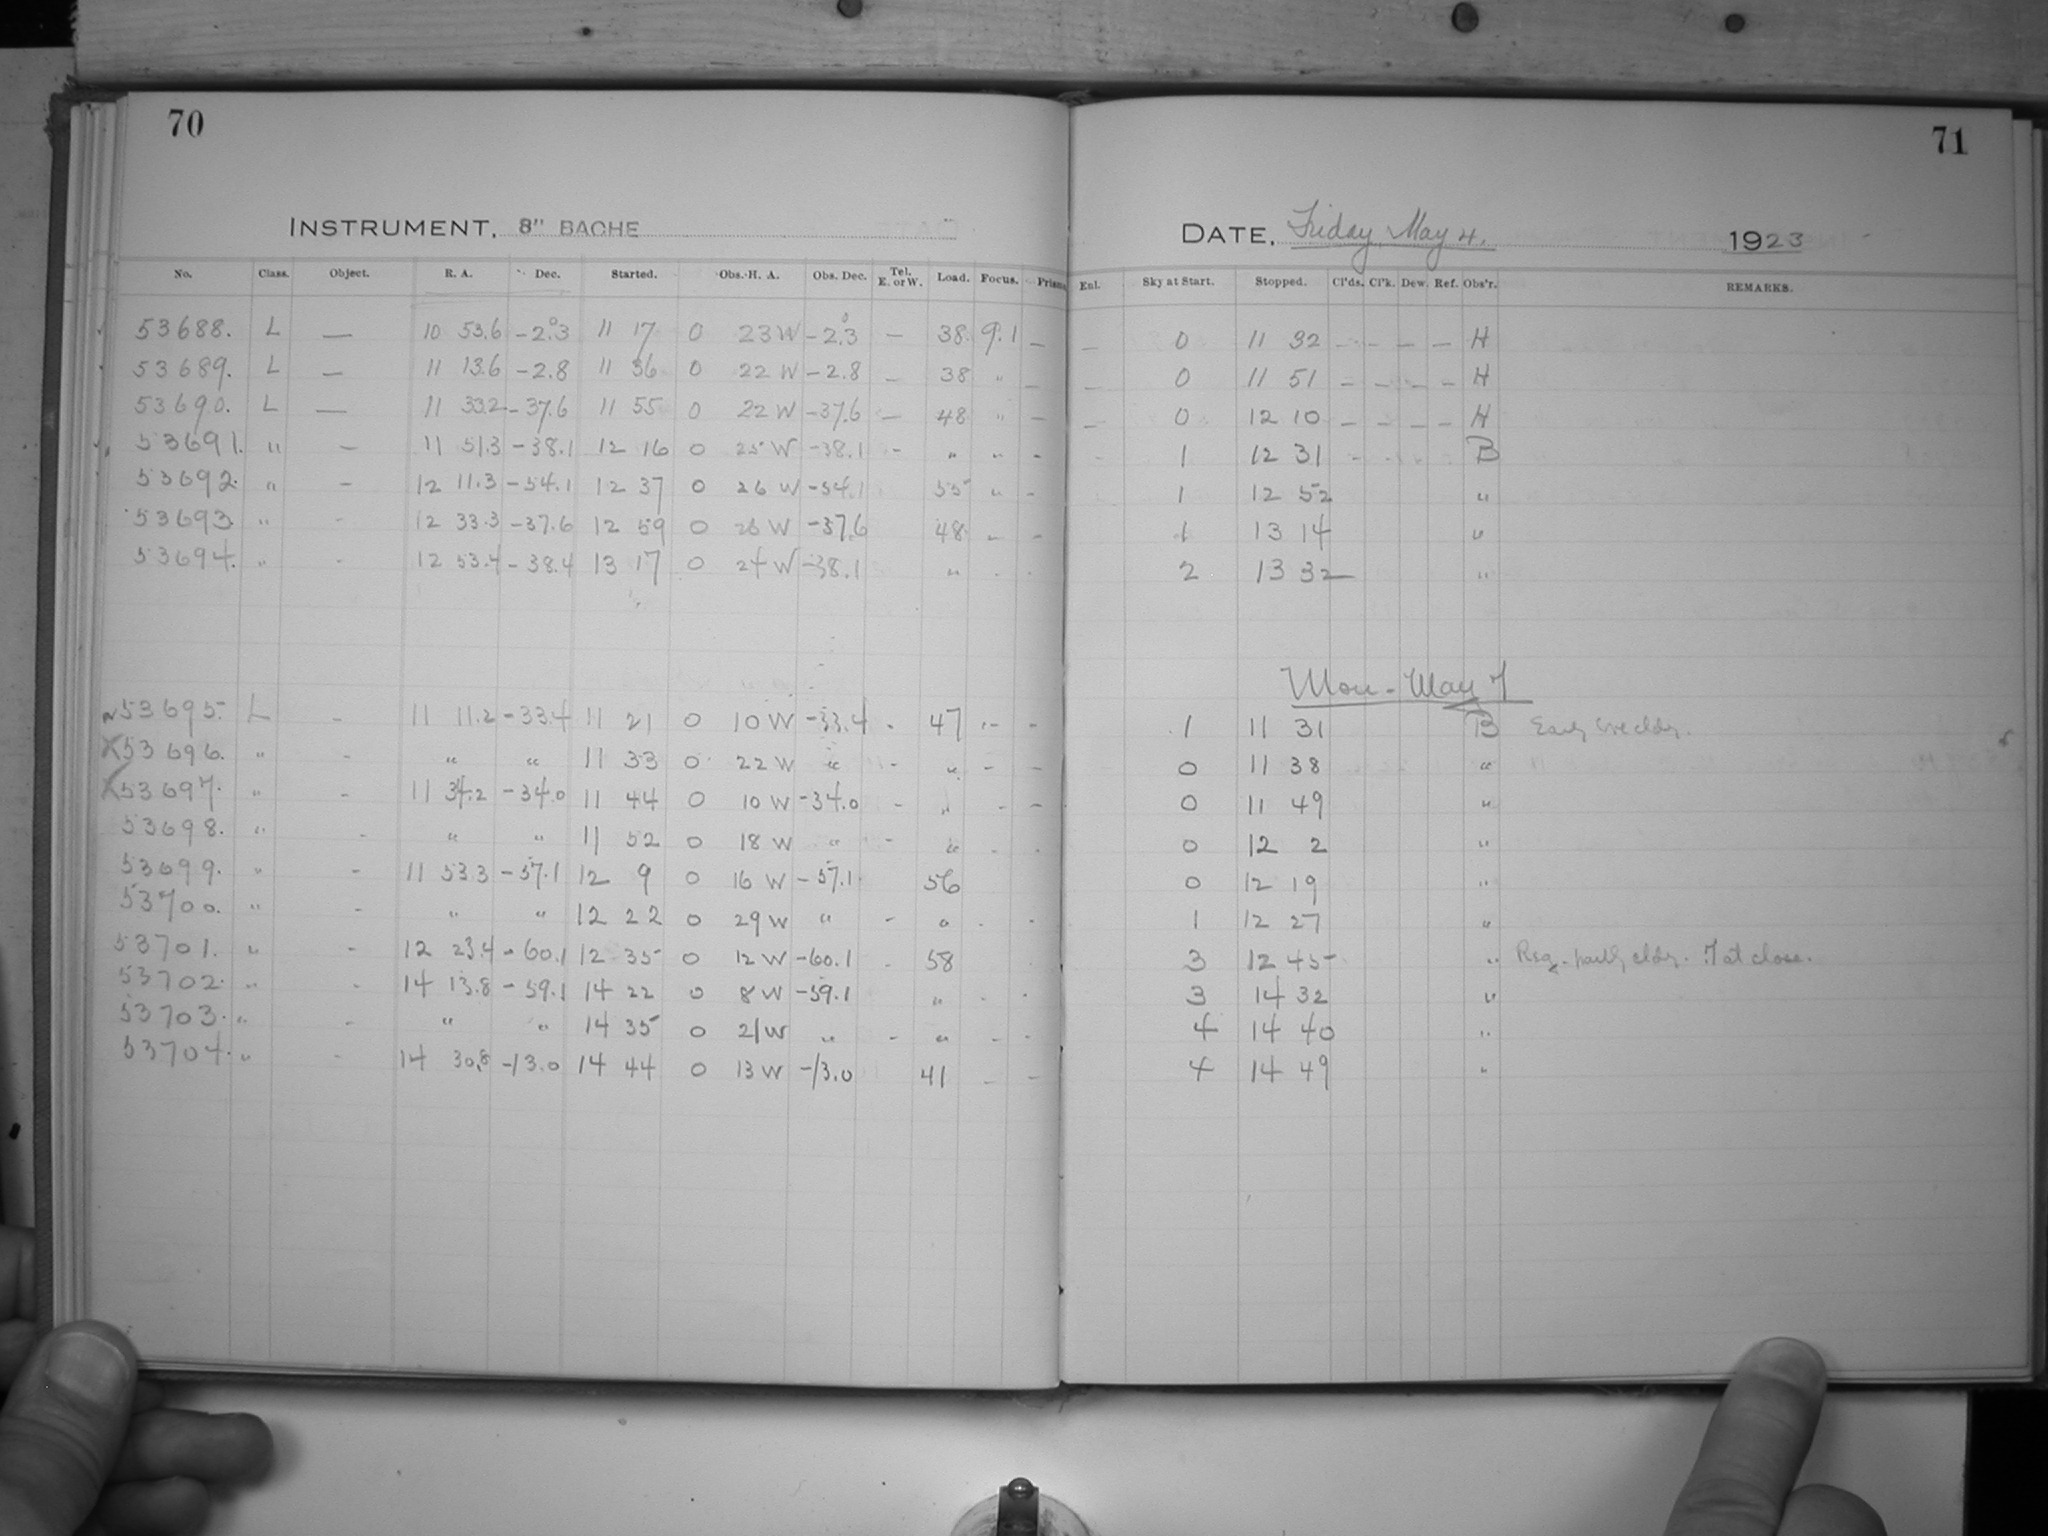 70
INSTRUMENT, 8" BACHE
No. Class. Object. R. A. Dec. Started. Obs. H. A. Obs. Dec. Tel. E. or W. Load. Focus. Prism
53688. L — 10 53.6 -2°.3 11 17 0 23 W -2°.3 — 38 9.1 —
53689. L — 11 13.6 -2.8 11 36 0 22 W -2.8 — 38 " —
53690. L — 11 33.2 -37.6 11 55 0 22 W -37.6 — 48 " —
53691. " — 11 51.3 -38.1 12 16 0 25 W -38.1 - " " -
53692. " — 12 11.3 -54.1 12 37 0 26 W -54.1 55 " -
53693. " - 12 33.3 -37.6 12 59 0 26 W -37.6 48 - -
53694. " - 12 53.4 -38.4 13 17 0 24 W -38.1 " - -
53695. L - 11 11.2 -33.4 11 21 0 10 W -33.4 - 47 - -
53696. " - " " 11 33 0 22 W " - " - -
53697. " - 11 34.2 -34.0 11 44 0 10 W -34.0 - " - -
53698. " - " " 11 52 0 18 W " - " - -
53699. " - 11 53.3 -57.1 12 9 0 16 W -57.1 56
53700. " - " " 12 22 0 29 W " - " - -
53701. " - 12 23.4 -60.1 12 35 0 12 W -60.1 - 58
53702. " - 14 13.8 -59.1 14 22 0 8 W -59.1 " - -
53703. " - " " 14 35 0 21 W " - " - -
53704. " - 14 30.8 -13.0 14 44 0 13 W -13.0 41 - -
71
DATE, Friday May 4. 1923
Enl. Sky at Start. Stopped. Cl'ds. Cl'k. Dew. Ref. Obs'r. REMARKS.
— 0 11 32 — — — — H
— 0 11 51 — — — — H
— 0 12 10 — — — — H
- 1 12 31 - - - - B
1 12 52 "
1 13 14 "
2 13 32 "
Mon - May 7
1 11 31 B Early
0 11 38 "
0 11 49 "
0 12 2 "
0 12 19 "
1 12 27 "
3 12 45 " Reg. partly cldy. 7 at close.
3 14 32 "
4 14 40 "
4 14 49 "